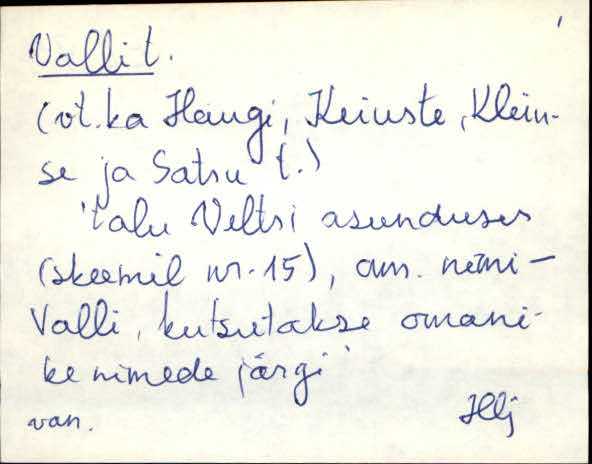 Valli t.
(vt. ka Haugi, Keiuste, Klein-
se ja Satsu t.)
'talu Veltsi asunduses
(skeemil nr. 15), am. nimi -
Valli, kutsutakse omani-
ke nimede järgi'
van. Hlj